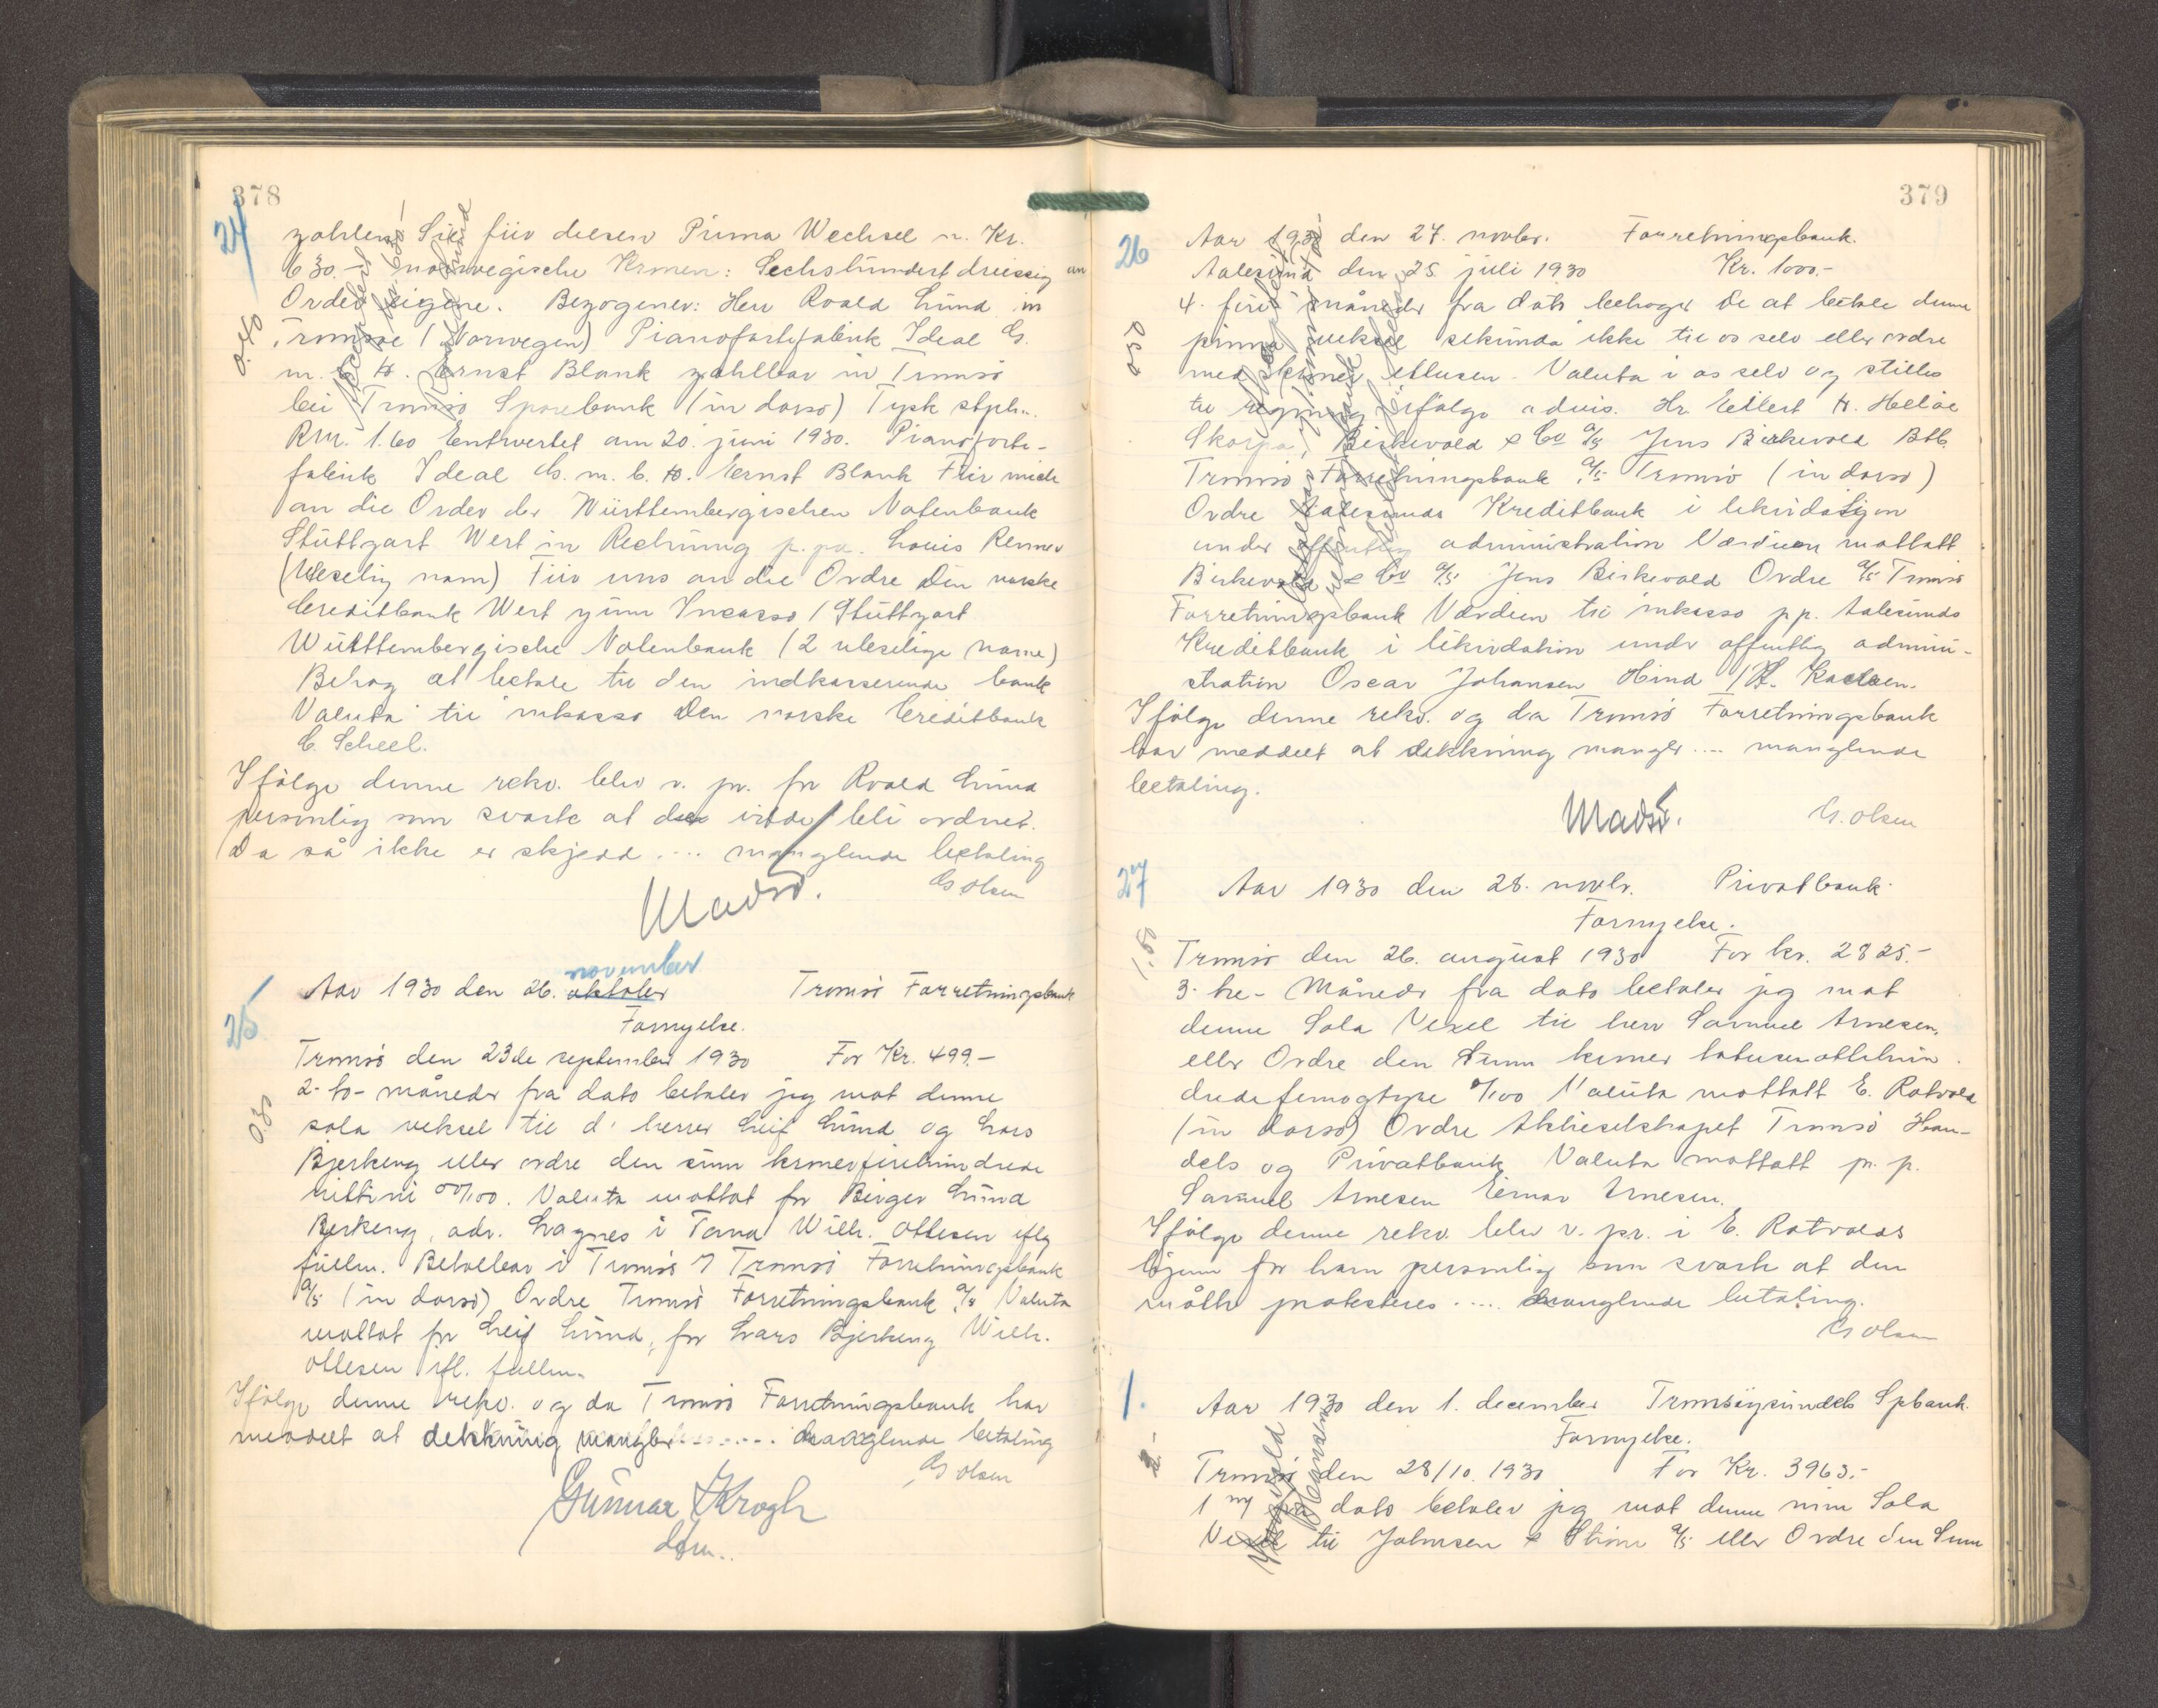 378
24
zahlen Sie für diesen Prima Wechsel n. Kr.
630.- norwegische Kronen: Sechshundert dreissig an
Order eigene. Bezogener: Herr Roald Lund in
Tromsoe (Norwegen) Pianofortefabrik Ideal G.
m. b. H. Ernst Blank zahlbar in Tromsö
bei Tromsö Sparebank (in dorso) Tysk stpl.
Rm. 1.60 Entwertet am 20. juni 1930. Pianoforte-
fabrik Ideal G. m. b. H. Ernst Blank Für mich
an die Order der Württembergischen Notenbank
Stuttgart Wert in Rechnung p.pa. Louis Renner
(Uleselig navn) Für uns an die Ordre Den norske
Creditbank Wert zum Incasso / Stuttgart
Württembergische Notenbank (2 uleselige navne)
Behag at betale til den indkasserende bank
Valuta til inkasso Den norske Creditbank
C. Scheel.
Ifølge denne rekv. blev v. pr. for Roald Lund
personlig som svarte at den vilde bli ordnet.
Da så ikke er skjedd .... manglende betaling
G Olsen
Madsö.
0.40
25
november
Aar 1930 den 26. oktober Tromsö Forretningsbank
Fornyelse.
Tromsö den 23de september 1930 For Kr. 499.-
2- to- måneder fra dato betaler jeg mot denne
sola veksel til d' herrer Leif Lund og Lars
Bjerkeng eller ordre den sum kroner firehundrede
nitti ni 00/100. Valuta mottat for Birger Lund
Bjerkeng, adr. Langnes i Tana Wilh. Ottesen eflg
fullm. Betalbar i Tromsö I Tromsö Forretningsbank
A/S (in dorso) Ordre Tromsö Forretningsbank A/S Valuta
mottat for Leif Lund, for Lars Bjerkeng Wilh.
Ottesen ifl. fullm.
Ifølge denne rekv. og da Tromsö Forretningsbank har
meddelt at dekkning mangler....... manglende betaling
G Olsen
Gunnar Krogh
0.80
379
26
Aar 1930 den 27. novbr. Forretningsbank.
Aalesund den 25 juli 1930 Kr. 1000.-
4. fire måneder fra dato behager De at betale denne
prima veksel sekunda ikke til os selv eller ordre
med kroner ettusen. Valuta i os selv og stilles
til regning ifølge advis. Hr. Eilert H. Heløe
Skorpa, Birkevold & Co A/S Jens Birkevold Btb.
Tromsö Forretningsbank A/S Tromsö (in dorso)
Ordre Aalesunds Kreditbank i likvidasjon
under offentlig administration Værdien mottatt
Birkevold & Co A/S Jens Birkevold Ordre A/S Tromsö
Forretningsbank Værdien til inkasso pp. Aalesunds
Kreditbank i likvidation under offentlig admini-
stration Oscar Johansen Hind
Ifølge denne rekv. og da Tromsö Forretningsbank
har meddelt at dekkning mangler .... manglende
betaling.
Madsö. G. Olsen
27
Aar 1930 den 28. novbr. Privatbank.
Fornyelse.
Tromsö den 26. august 1930 For kr. 2825.-
3- tre- Måneder fra dato betaler jeg mot
denne Sola Vexel til herr Samuel Arnesen
eller Ordre den Sum kroner totusenottehun-
dredefemogtyve 0/100 Valuta mottatt E. Rotvold
(in dorso) Ordre Aktieselskapet Tromsö Han-
dels og Privatbank Valuta mottatt p. p.
Samuel Arnesen Einar Arnesen.
Ifølge denne rekv. blev v. pr. i E. Rotvolds
hjem for ham personlig som svarte at den
måtte protesteres ..... manglende betaling.
G Olsen
1.
Aar 1930 den 1. december Tromsöysundets Spbank.
Fornyelse.
Tromsö den 28/10. 1930 For Kr. 3963.-
1 dato betaler jeg mot denne min Sola
Vexel til Johnsen & A/S eller Ordre den Sum